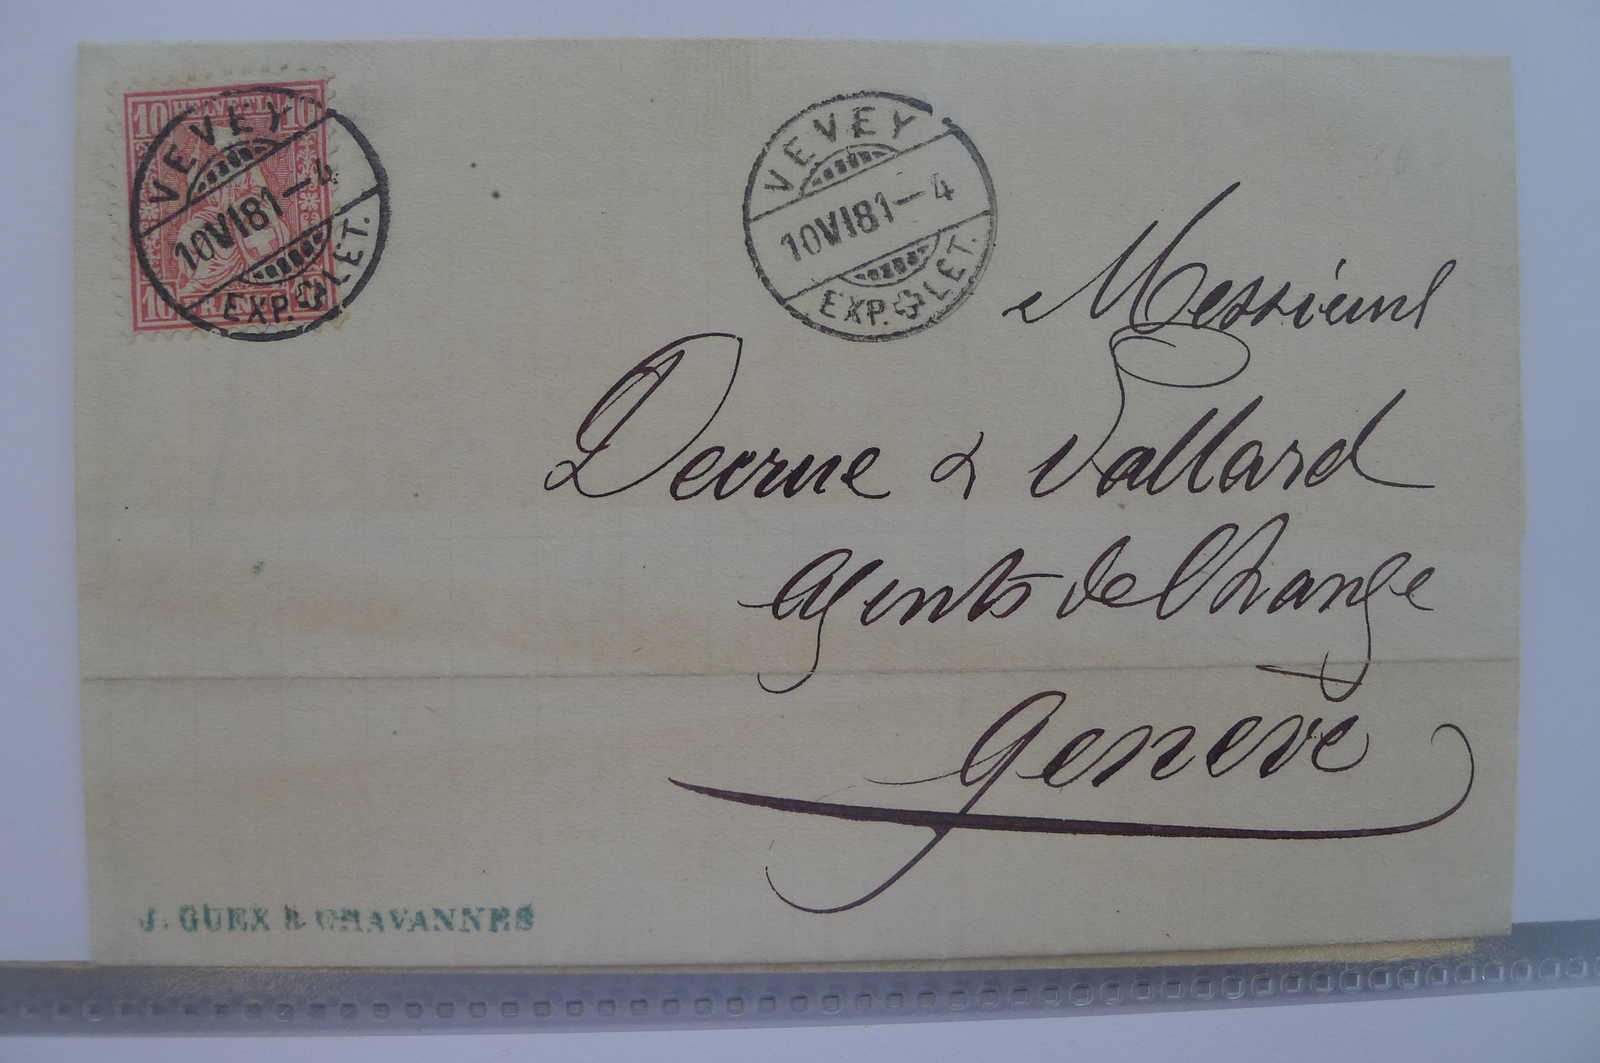 10 HELVETIA 10
10 FRANCO 10
VEVEY
10 VI 81 — 4
EXP. LET.
VEVEY
10 VI 81 — 4
EXP. LET.
Messieurs
Decrue & Vallard
Agents de Change
Genève
J. GUEX & CHAVANNES